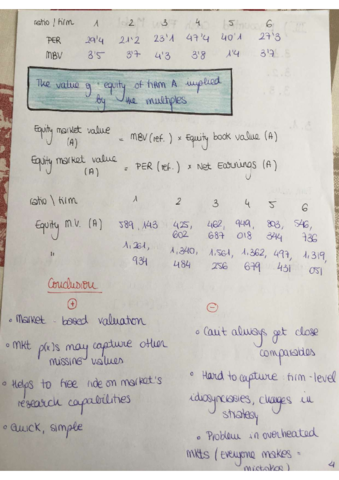 ratio / firm 1 2 3 4 5 6
PER 29'4 21'2 23'1 47'4 40'1 27'3
MBV 3'5 3'7 4'3 3'8 1'4 3'7
The value of equity of firm A implied
by the multiples
Equity market value (A) = MBV (ref.) * Equity book value (A)
Equity market value (A) = PER (ref.) * Net Earnings (A)
ratio \ firm 1 2 3 4 5 6
Equity M.V. (A) 589,143 425,602 462,687 949,018 803,394 546,736
" 1,261,934 1,340,484 1,561,256 1,362,679 497,431 1,319,051
Conclusion
+
• Market-based valuation
• MKt p(r)s may capture other
missing values
• Helps to free ride on market's
research capabilities
• Quick, simple
-
• Can't always get close
comparables
• Hard to capture firm-level
idiosyncrasies, changes in
strategy
• Problem in overheated
mkts (everyone makes
mistakes)